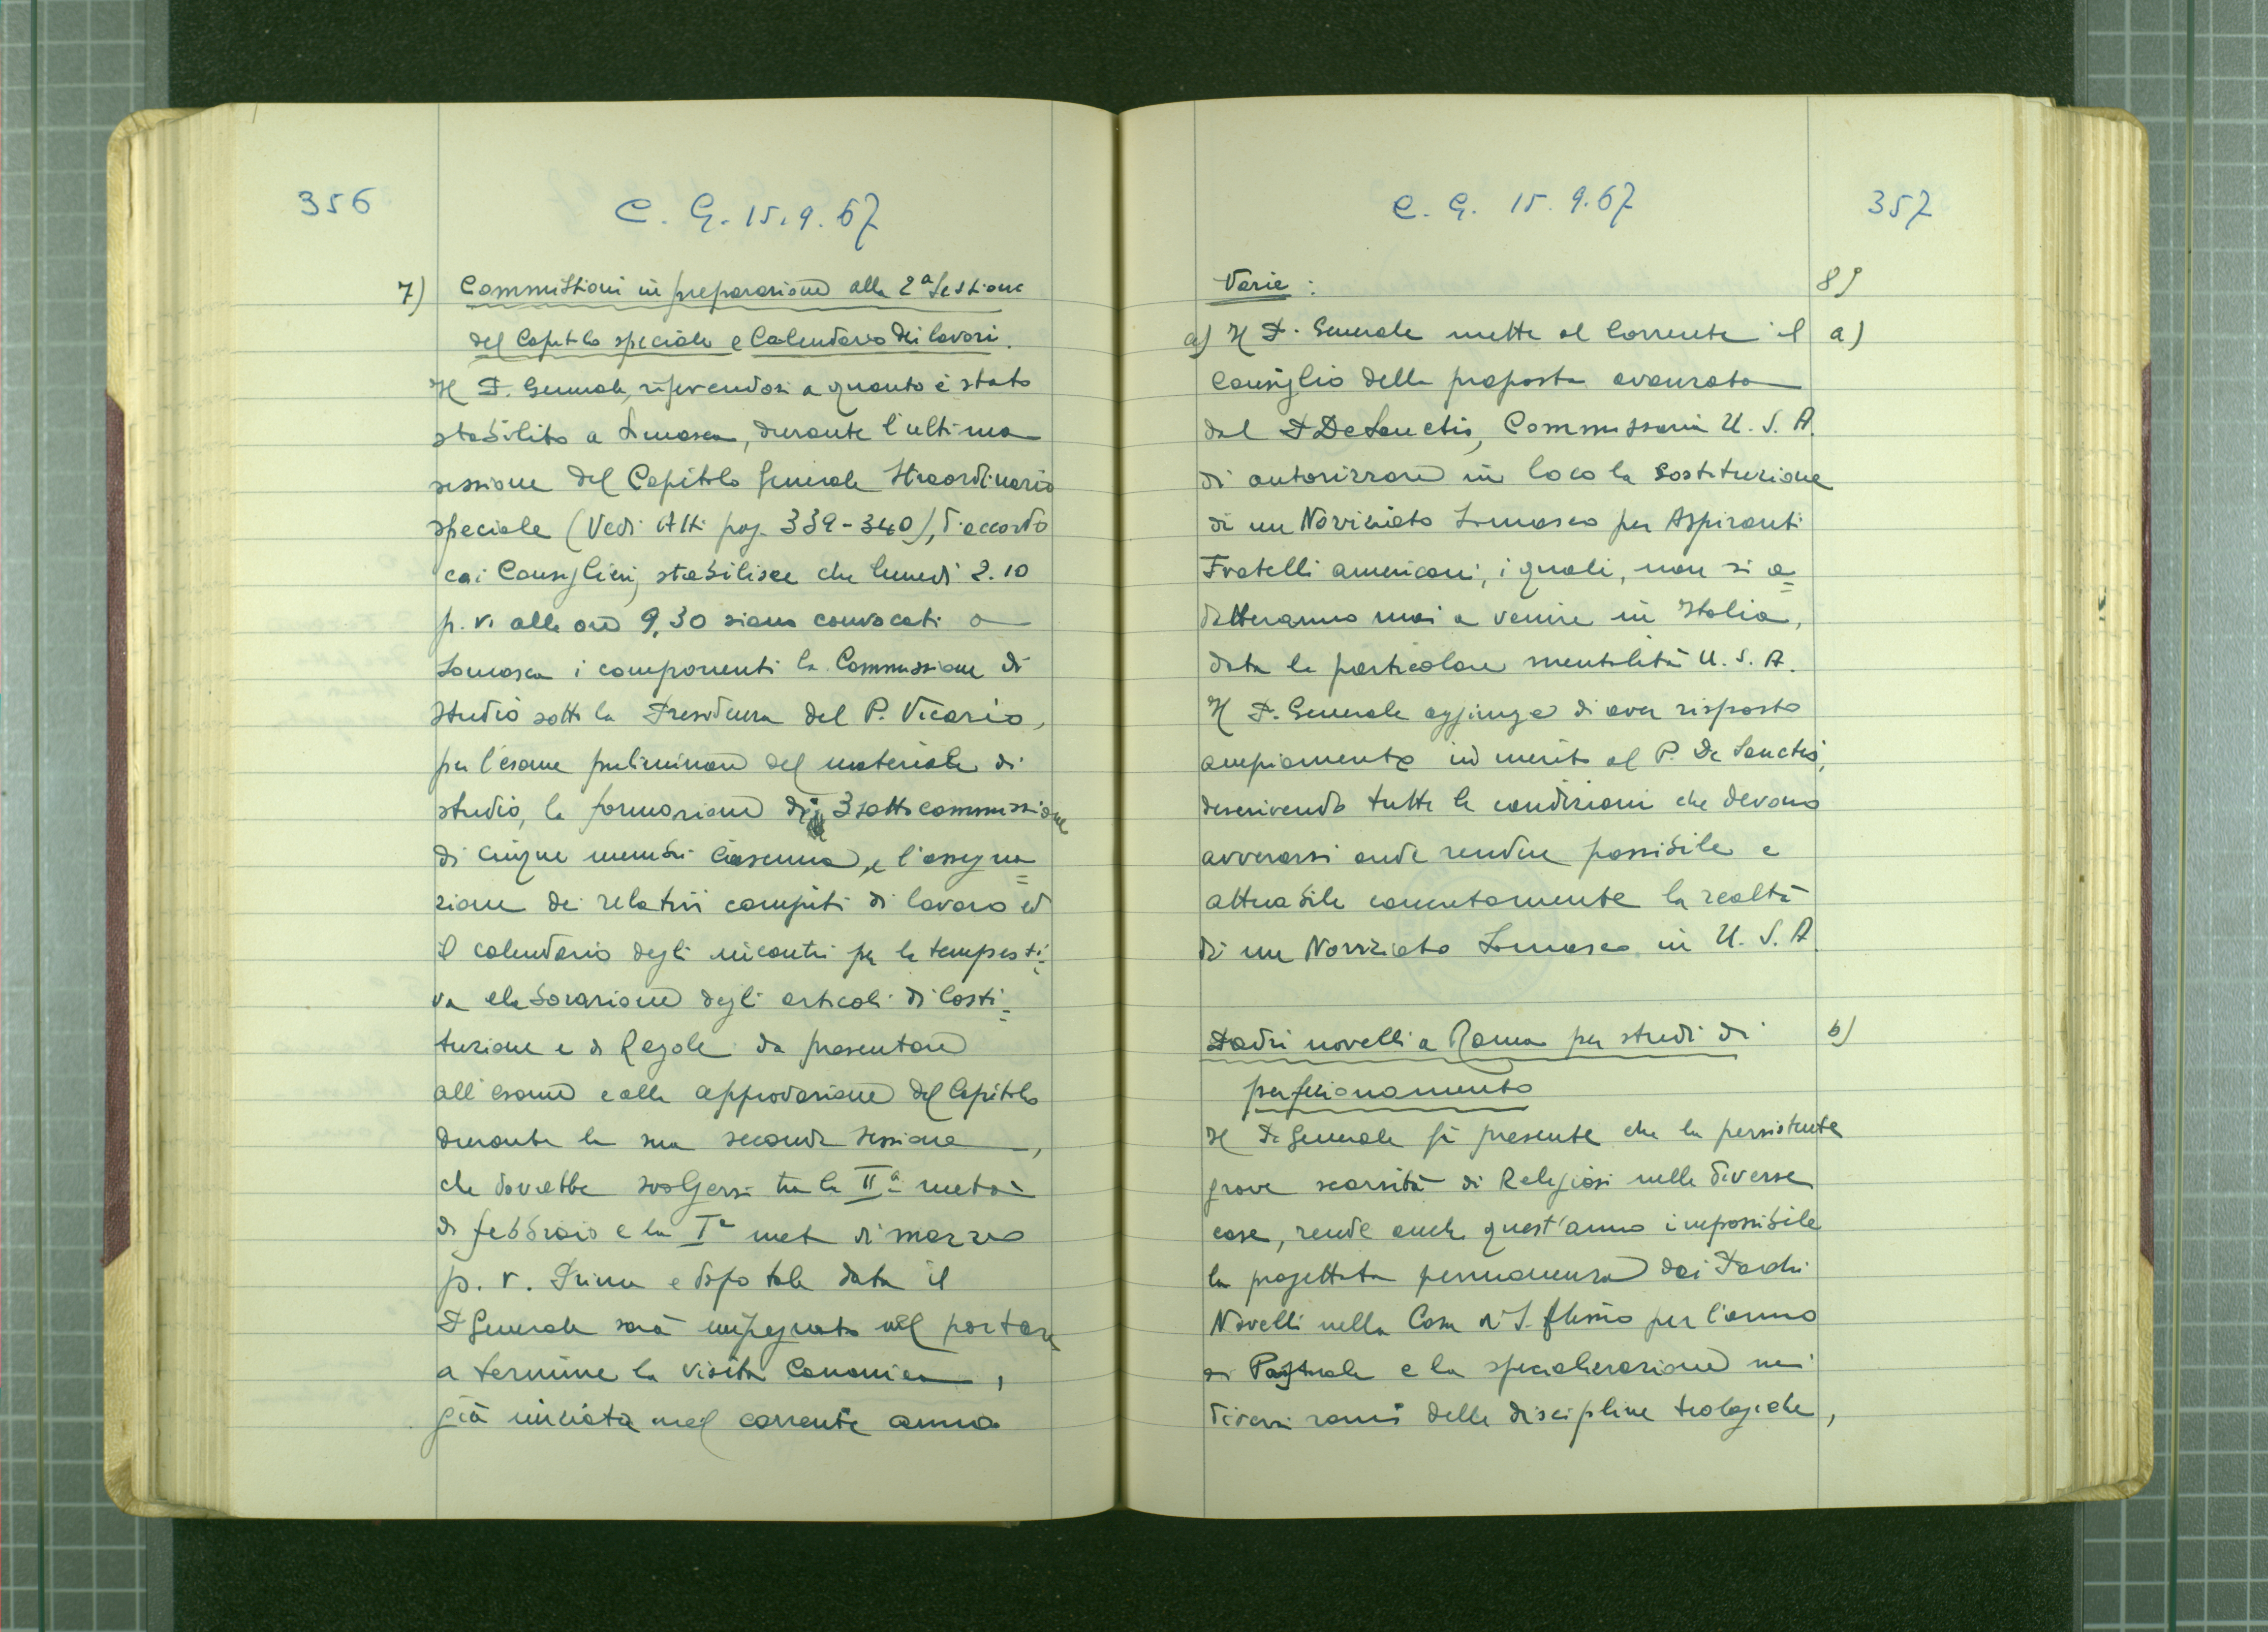 356
C. G. 15.9.67
7) Commissioni in preparazione alla 2ª Sessione
del Capitolo speciale e Calendario dei lavori.
Il P. Generale, riferendosi a quanto è stato
stabilito a Somasca, durante l'ultima
sessione del Capitolo Generale Straordinario
speciale (Vedi Atti pag. 339-340), d'accordo
coi Consiglieri, stabilisce che lunedì 2.10
p. v. alle ore 9,30 siano convocati a
Somasca i componenti la Commissione di
studio sotto la Presidenza del P. Vicario,
per l'esame preliminare del materiale di
studio, la formazione di 3 sottocommissione
di cinque membri ciascuna, e l'assegna=
zione dei relativi compiti di lavoro ed
il calendario degli incontri per la tempesti=
va elaborazione degli articoli di Costi=
tuzione e di Regole da presentare
all'esame e alla approvazione del Capitolo
durante la sua seconda sessione,
che dovrebbe svolgersi tra la IIª metà
di febbraio e la Iª metà di marzo
p. v. Prima e dopo tale data il
P Generale sarà impegnato nel portare
a termine la visita Canonica,
già iniziata nel corrente anno
C. G. 15.9.67
357
Varie: 8)
a) Il P. Generale mette al corrente il a)
Consiglio della proposta avanzata
dal P De Sanctis, Commissario U. S. A.
di autorizzare in loco la sostituzione
di un Noviziato Somasco per Aspiranti
Fratelli americani, i quali, non si a=
datteranno mai a venire in Italia,
data la particolare mentalità U. S. A.
Il P. Generale aggiunge di aver risposto
ampiamente in merito al P. De Sanctis,
descrivendo tutte le condizioni che devono
avverarsi onde rendere possibile e
attuabile concretamente la realtà
di un Noviziato Somasco in U. S. A.
Padri novelli a Roma per studi di b)
perfezionamento
Il P. Generale fa presente che la persistente
grave scarsità di Religiosi nelle diverse
case, rende anche quest'anno impossibile
la progettata permanenza dei Padri
Novelli nella Casa di S. Alessio per l'anno
di Pastorale e la specializzazione nei
diversi rami delle discipline teologiche,